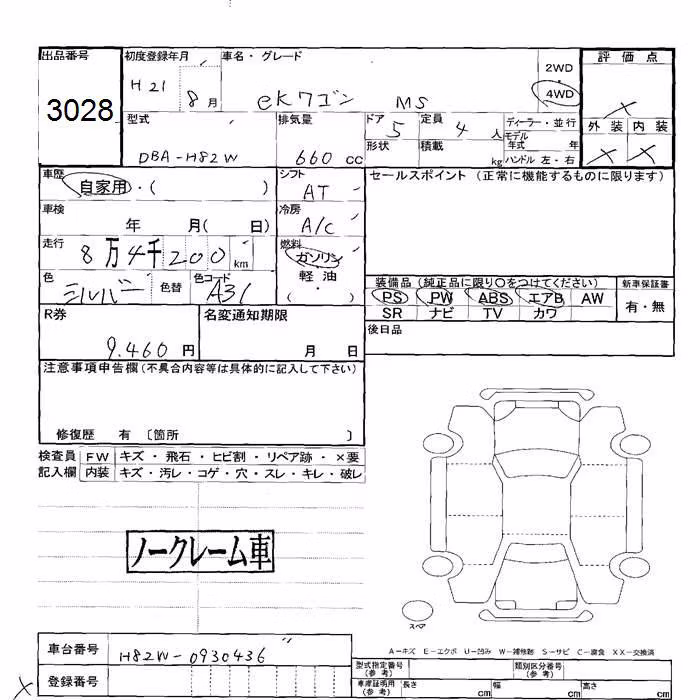 出品番号 初度登録年月 車名・グレード 評価点
3028 H21 8月 ekワゴン MS 2WD 4WD ×
型式 排気量 ドア 定員 ディーラー・並行 外装 内装
DBA-H82W 660cc 5 4人 モデル年式 年 × ×
形状 積載 kg ハンドル 左・右
車歴 シフト セールスポイント (正常に機能するものに限ります)
自家用・( ) AT
車検 冷房
年 月( 日) A/C
走行 燃料
8万4千200km ガソリン
色 色替 色コード 軽油
シルバー A31 (・)
装備品(純正品に限り○をつけてください) 新車保証書
PS PW ABS エアB AW 有・無
SR ナビ TV カワ
R券 名変通知期限 後日品
9.460円 月 日
注意事項申告欄(不具合内容等は具体的に記入して下さい)
修復歴 有 〔箇所 〕
検査員 FW キズ・飛石・ヒビ割・リペア跡・×要
記入欄 内装 キズ・汚レ・コゲ・穴・スレ・キレ・破レ
ノークレーム車
スペア
A−キズ E−エクボ U−凹み W−補修跡 S−サビ C−腐食 XX−交換済
車台番号 H82W-0930436
型式指定番号(参考) 類別区分番号(参考)
× 登録番号
車庫証明用(参考) 長さ cm 幅 cm 高さ cm